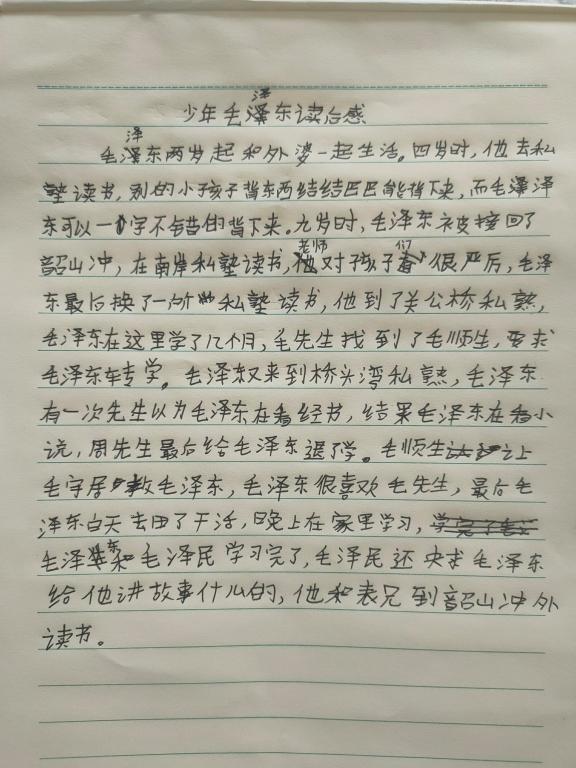 少年毛泽东读后感
毛泽东两岁起和外婆一起生活。四岁时，他去私
塾读书，别的小孩子背东西结结巴巴能背下来，而毛泽
东可以一个字不错的背下来。九岁时，毛泽东被接回了
韶山冲，在南岸私塾读书，老师对孩子们很严后，毛泽
东最后换了一所私塾读书，他到了关公桥私熟，
毛泽东在这里学了几个月，毛先生找到了毛顺生，要求
毛泽东转学。毛泽东又来到桥头湾私熟，毛泽东
有一次先生以为毛泽东在看经书，结果毛泽东在看小
说，周先生最后给毛泽东退了学。毛顺生让
毛宇居教毛泽东，毛泽东很喜欢毛先生，最后毛
泽东白天去田了干活，晚上在家里学习，
毛泽东和毛泽民学习完了，毛泽民还央求毛泽东
给他讲故事什么的，他和表兄到韶山冲外
读书。